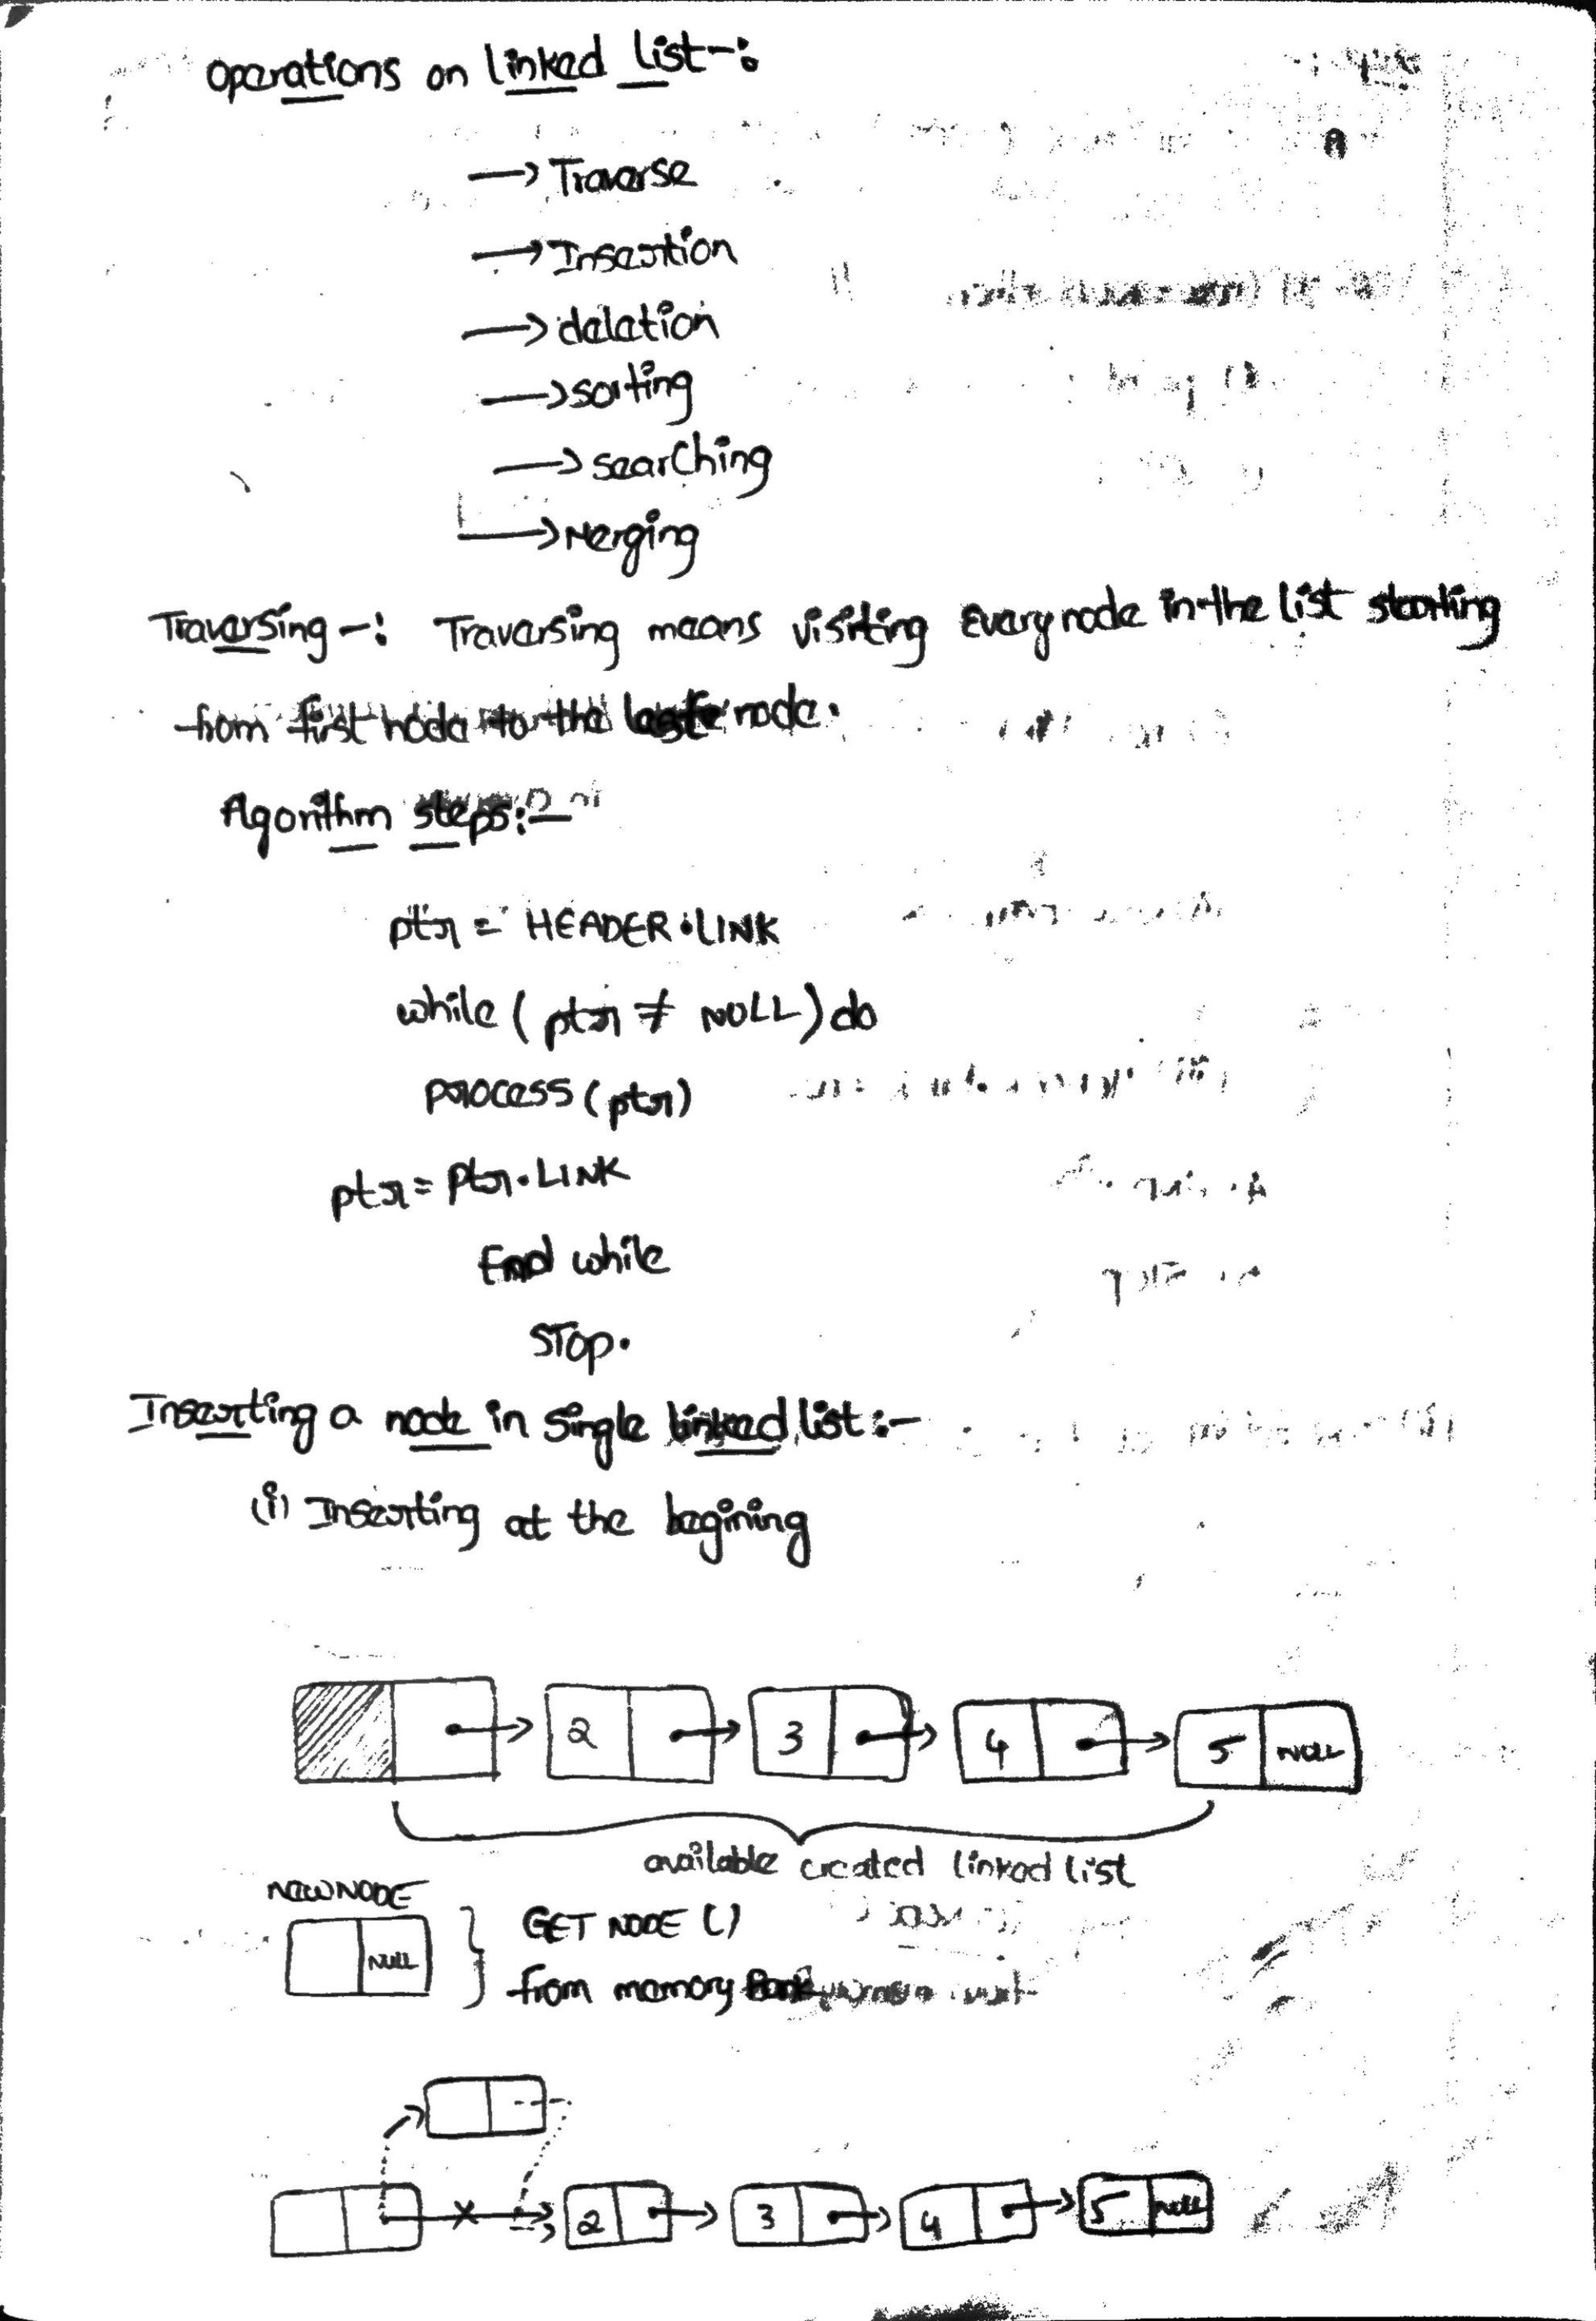 Operations on linked List-:
→ Traverse
→ Insertion
→ deletion
→ sorting
→ searching
→ Merging
Traversing -: Traversing means visiting Every node in the list starting
from first node to the last node.
Algorithm steps:-
ptr = HEADER.LINK
while ( ptr ≠ NULL) do
process (ptr)
ptr = ptr.LINK
End while
STOP.
Inserting a node in single linked list:-
(i) Inserting at the begining
2 3 4 5 NULL
available created linked list
NEWNODE
NULL
GET NODE ()
from memory
2 3 4 5 NULL